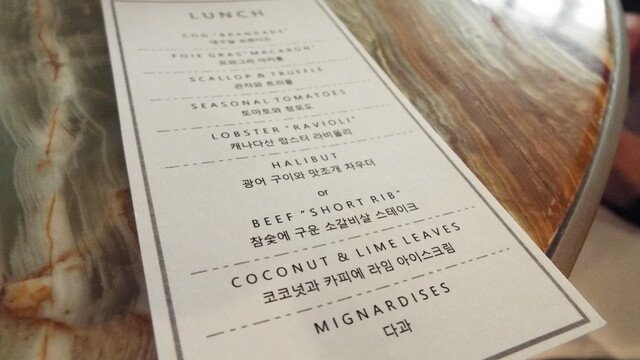 LUNCH
COD "BRANDADE"
대구살 브랑다드
FOIE GRAS "MACARON"
프와그라 마카롱
SCALLOP & TRUFFLE
관자와 트러플
SEASONAL TOMATOES
토마토와 청포도
LOBSTER "RAVIOLI"
캐나다산 랍스터 라비올리
HALIBUT
광어 구이와 맛조개 차우더
or
BEEF "SHORT RIB"
참숯에 구운 소갈비살 스테이크
COCONUT & LIME LEAVES
코코넛과 카피에 라임 아이스크림
MIGNARDISES
다과